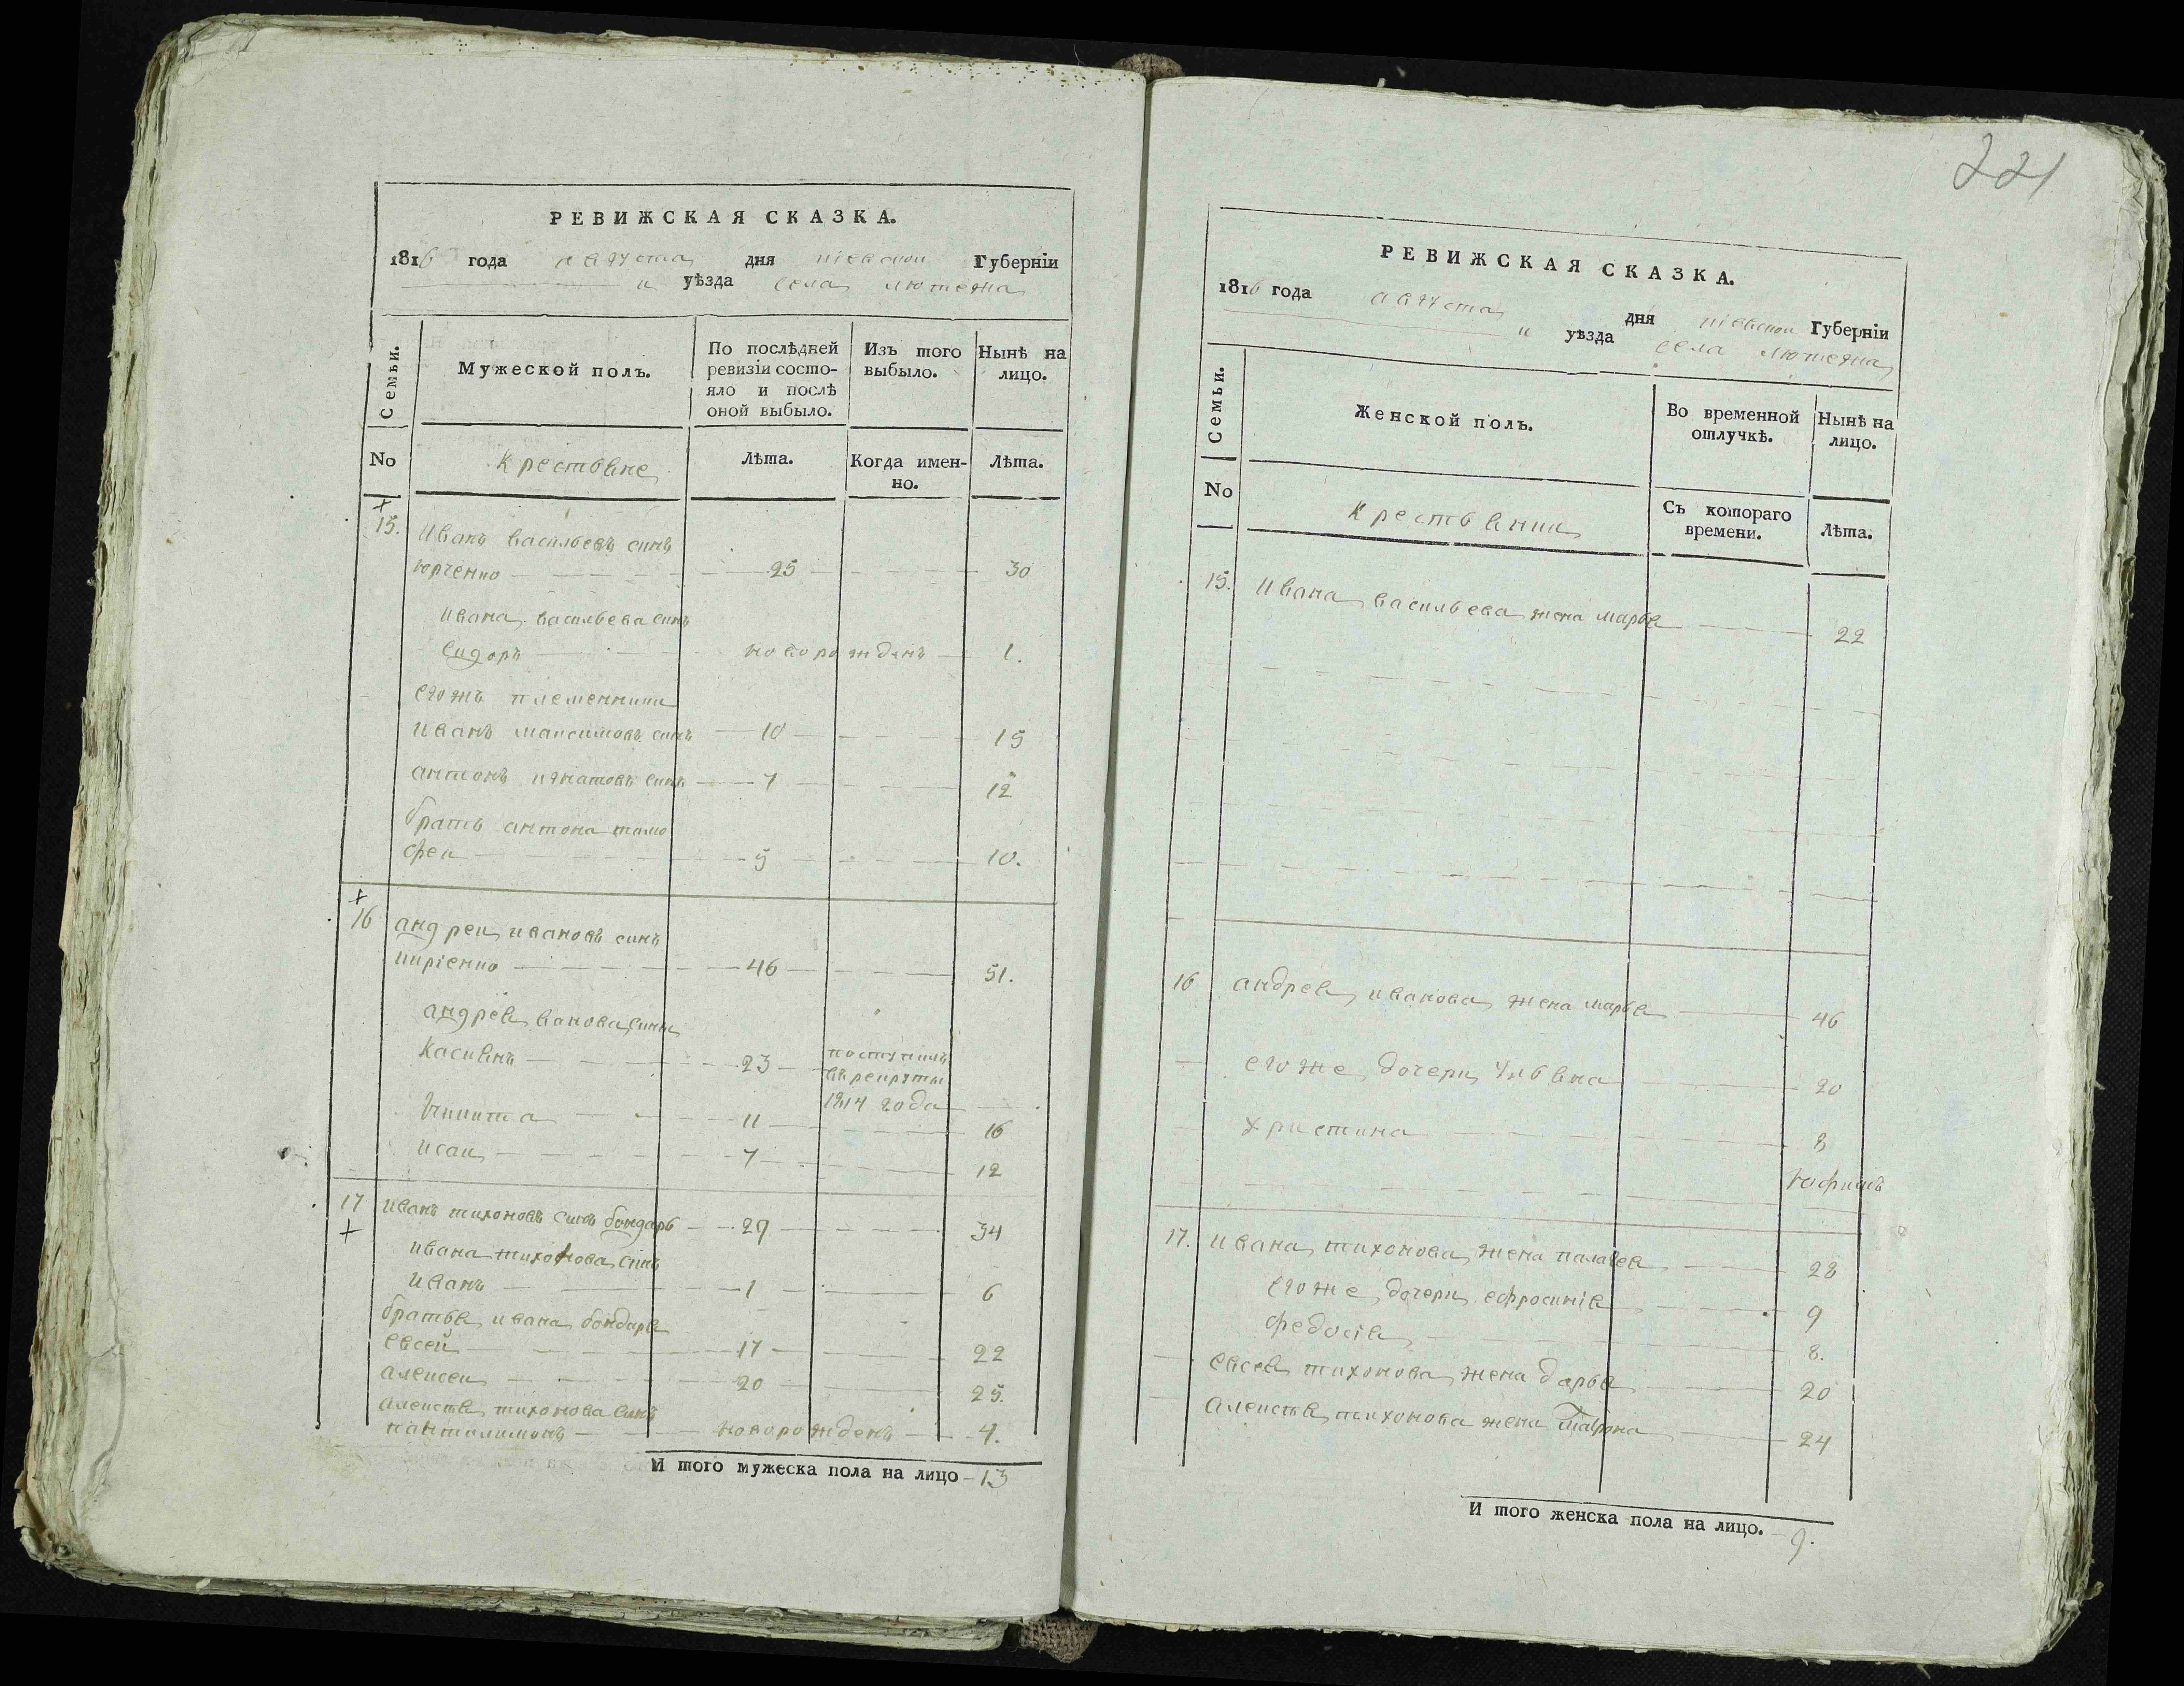 221
РЕВИЖСКАЯ СКАЗКА.
1816 года августа дня киевской Губерніи
и уѣзда села лютежа
Семьи.
Мужеской полъ.
По послѣдней ревизіи состо-
яло и послѣ
оной выбыло.
Изъ того
выбыло.
Нынѣ на
лицо.
No
крестьяне
Лѣта.
Когда имен-
но.
Лѣта.
15. Иванъ васильевъ синъ
юрченко 25 30
ивана васильева синъ
Сидоръ новорожденъ 1.
егожъ племенники
иванъ максимовъ синъ 10 15
антонъ игнатовъ синъ 7 12
братъ антона тимо
фей 5 10.
16 андрей ивановъ синъ
киріенко 46 51.
андрея ванова сини
Касиянъ 23 поступилъ
въ рекруты
1814 года
Никита 11 16
исаи 7 12
17 иванъ тихоновъ синъ бондарь 29 34
ивана тихонова синъ
иванъ 1 6
братья ивана бондаря
евсей 17 22
алексеи 20 25.
алексея тихонова синъ
пантилимонъ новорожденъ 4.
И того мужеска пола на лицо 13
РЕВИЖСКАЯ СКАЗКА.
1816 года августа дня киевской Губерніи
и уѣзда села лютежа
Семьи.
Женской полъ.
Во временной
отлучкѣ.
Нынѣ на
лицо.
No
крестьянки
Съ котораго
времени.
Лѣта.
15. Ивана васильева жена марья 22
16 андрея иванова жена марья 46
егоже дочери улияна 20
христина 8
17. ивана тихонова жена палагея 28
егоже дочери ефросинія 9
федосія 8.
евсея тихонова жена дарья 20
алексея тихонова жена 24
И того женска пола на лицо. 9.